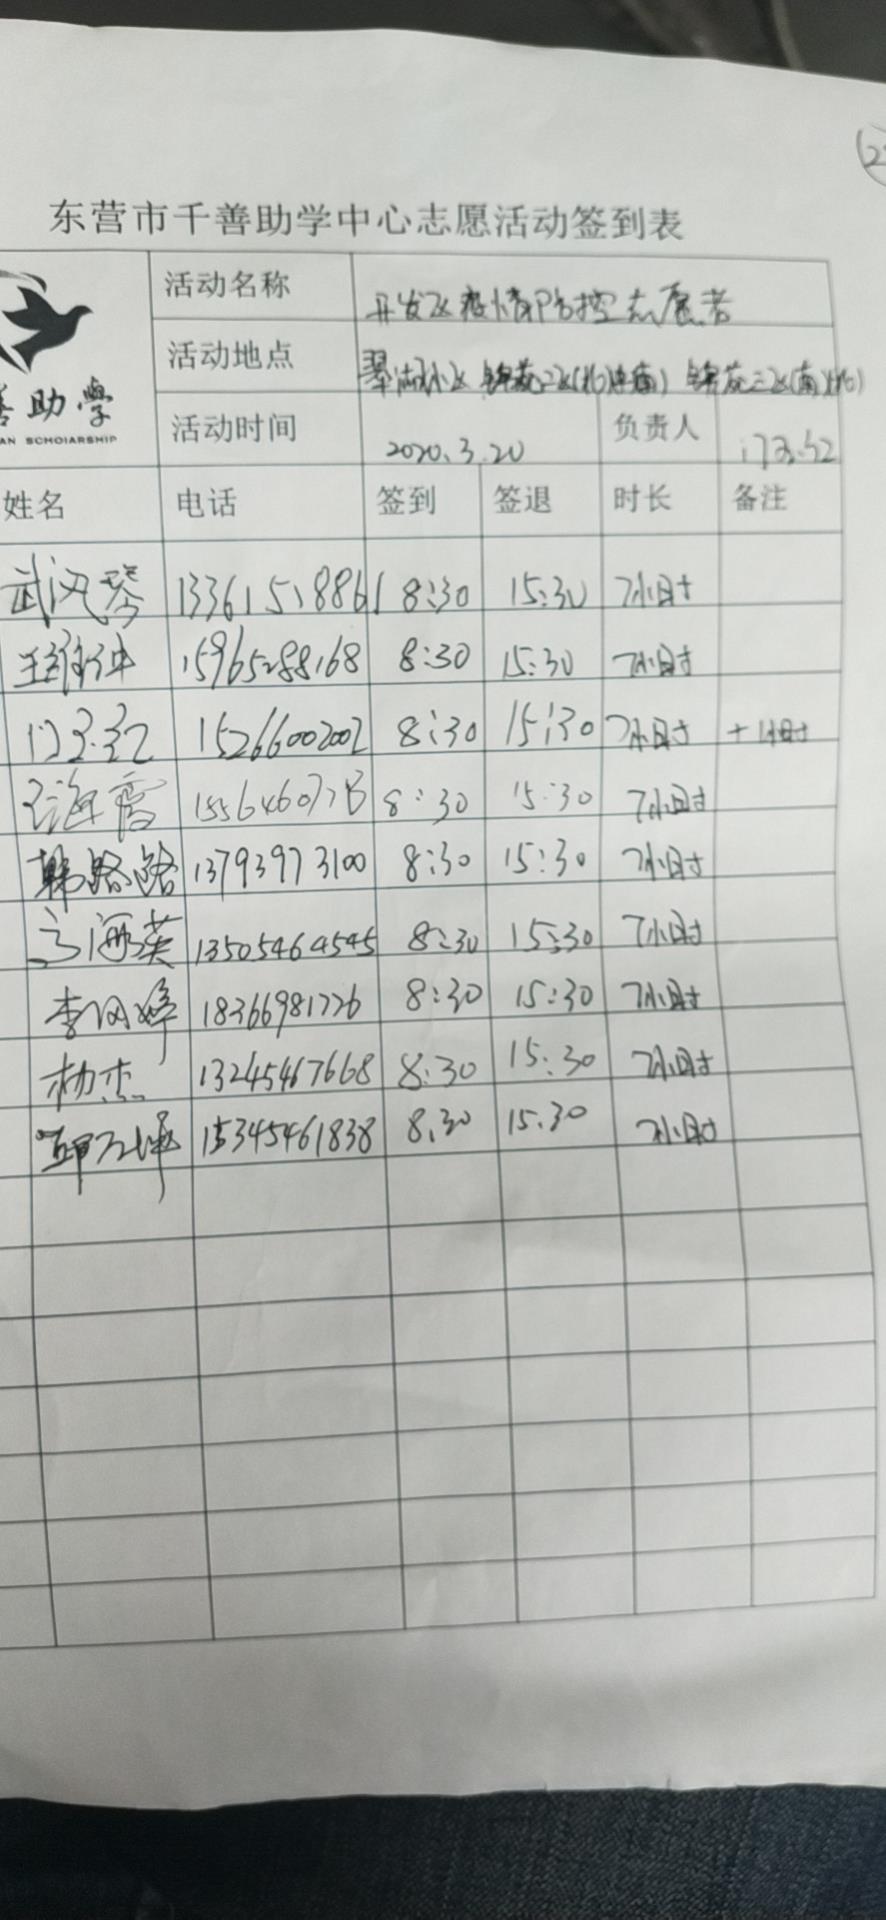 东营市千善助学中心志愿活动签到表
善助學
AN SCHOIARSHIP
活动名称 开发区疫情防控志愿者
活动地点 翠湖小区 锦苑二区(北 南) 锦苑三区(南 北)
活动时间 2020.3.20 负责人
姓名 电话 签到 签退 时长 备注
武风琴 13361518861 8:30 15:30 7小时
15965288168 8:30 15:30 7小时
15266002002 8:30 15:30 7小时 +1小时
8:30 15:30 7小时
韩路路 13793973100 8:30 15:30 7小时
高海英 13505464545 8:30 15:30 7小时
李 婷 18366981726 8:30 15:30 7小时
杨杰 13245467668 8:30 15:30 7小时
15345461838 8.30 15.30 7小时